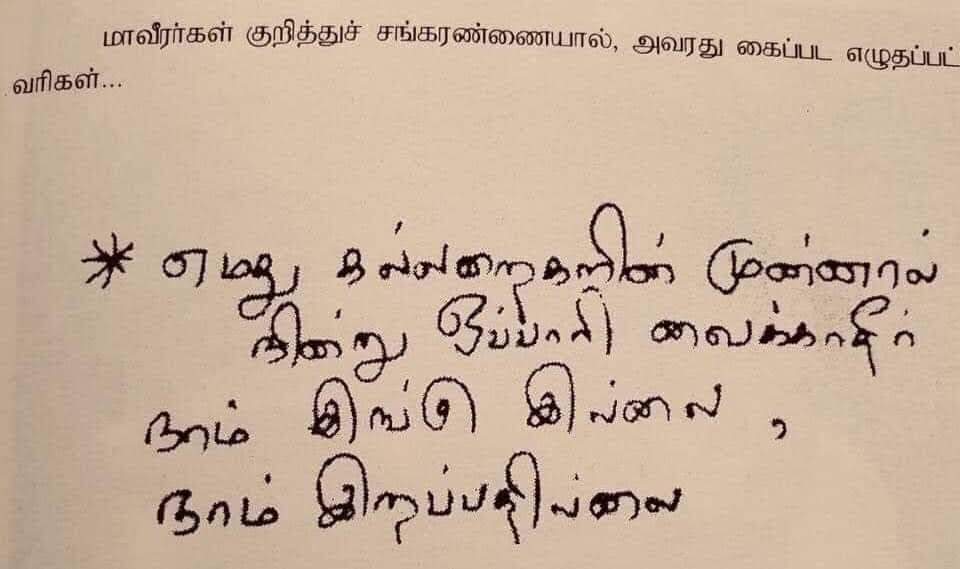 மாவீரர்கள் குறித்துச் சங்கரண்ணையால், அவரது கைப்பட எழுதப்பட்
வரிகள்...
* எமது கல்லறைகளின் முன்னால்
நின்று ஒப்பாரி வைக்காதீர்
நாம் இங்கு இல்லை,
நாம் இறப்பதில்லை